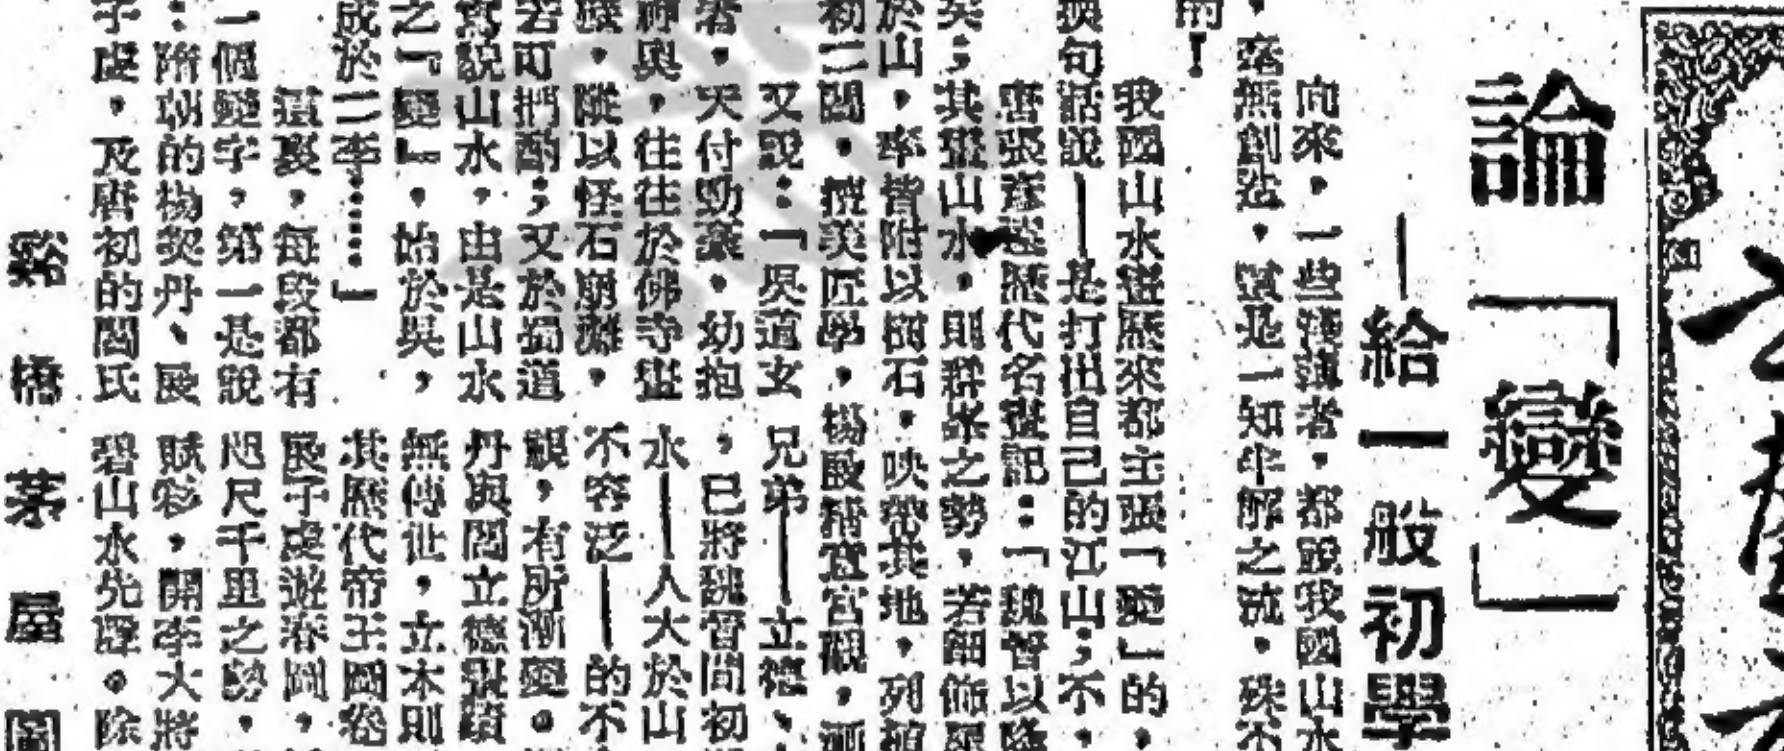 論「變」
——給一般初學
向來，一些淺薄者，都說我國山水
，毫無創造，實是一知半解之流，殊不
的！
我國山水畫歷來都主張「變」的，
換句話說——是打出自己的江山；不
唐張彥遠歷代名畫記：「魏晉以降
矣；其畫山水，則群峯之勢，若鈿飾犀
於山，率皆附以樹石，映帶其地，列植
初二閻，擅美匠學，楊展精意宮觀，
又說：「吳道玄
者，天付勁毫，幼抱
神奧，往往於佛寺畫
壁，縱以怪石崩灘，
若可捫酌；又於蜀道
寫說山水，由是山水
之「變」，始於吳，
成於二李……」
這裏，每段都有
一個變字，第一是說
：隋朝的楊契丹、展
子虔，及唐初的閻氏
兄弟——立德、
，已將魏晉間初
水——人大於山
不容泛——的不
觀，有所漸變。
丹與閻立德
無傳世，立本則
其歷代帝王圖卷
展子虔遊春圖，
咫尺千里之勢，
賦彩，開李大將
碧山水先河。除
谿橋茅屋圖